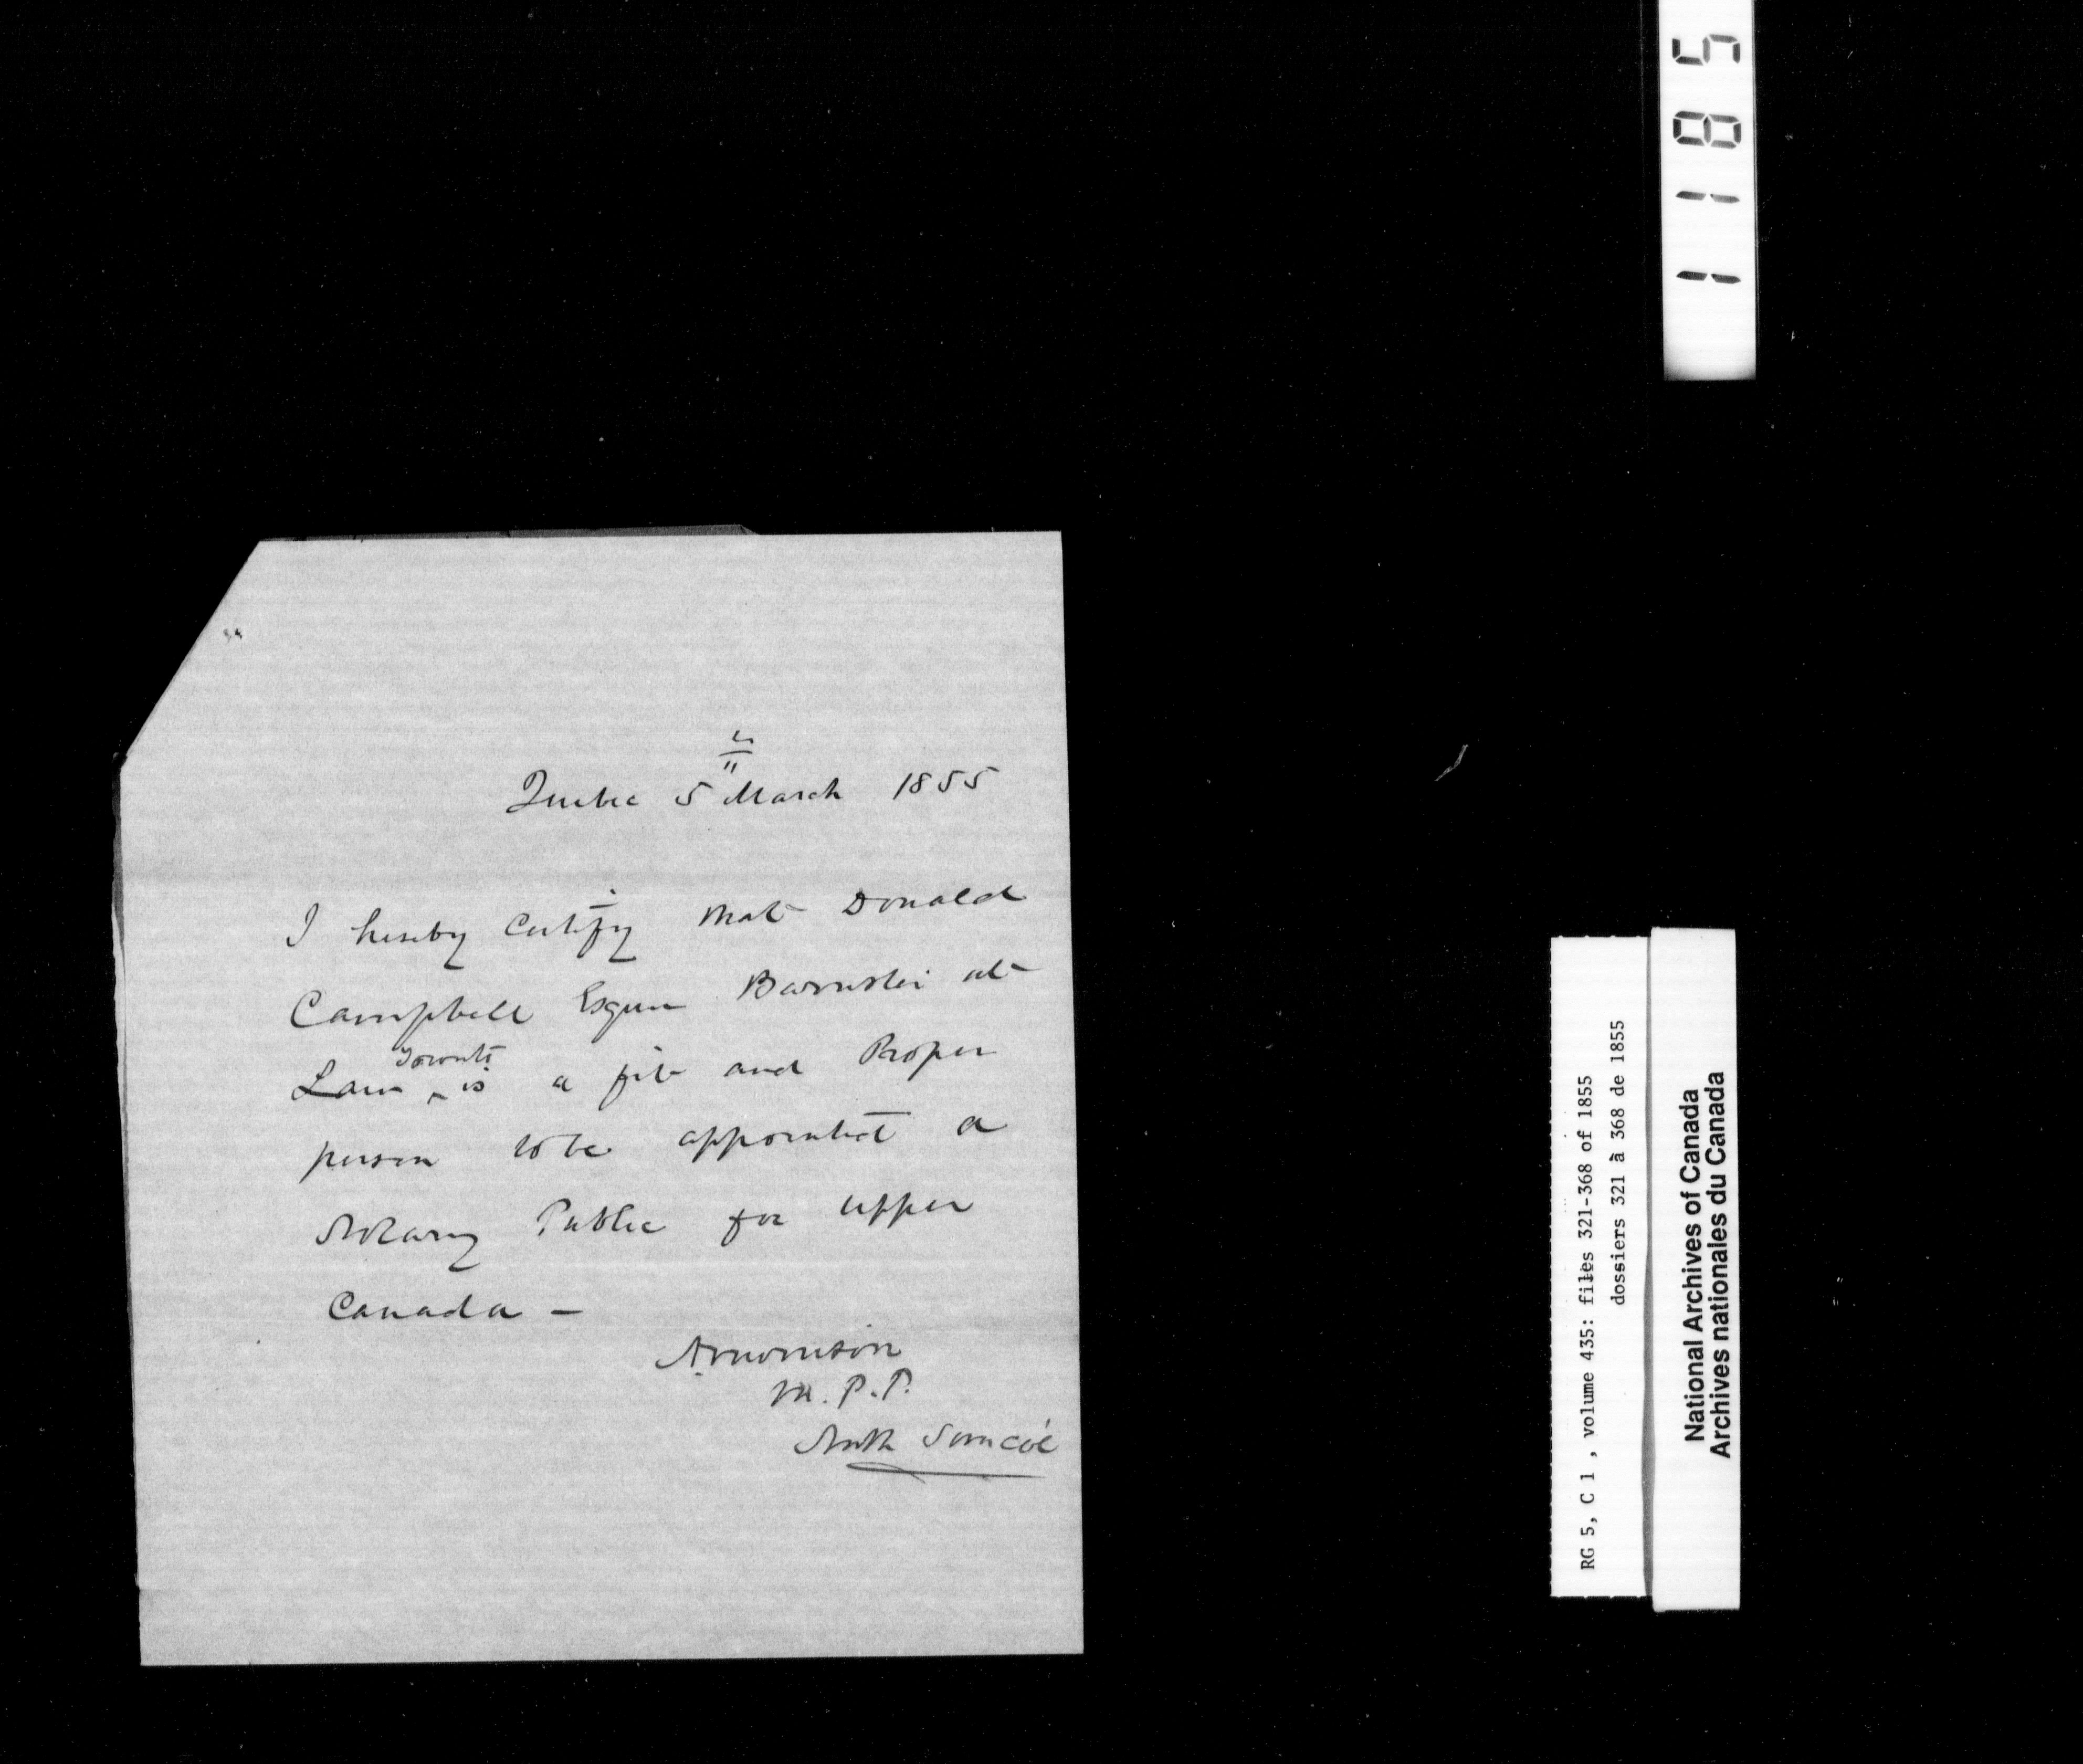 1185
Quebec 5th March 1855
I hereby certify that Donald
Campbell Esquire Barrister at
Law Toronto is a fit and Proper
person to be appointed a
Notary Public for Upper
Canada —
A Morrison
M.P.P.
North Simcoe
RG 5, C 1 , volume 435: files 321-368 of 1855
dossiers 321 à 368 de 1855
National Archives of Canada
Archives nationales du Canada